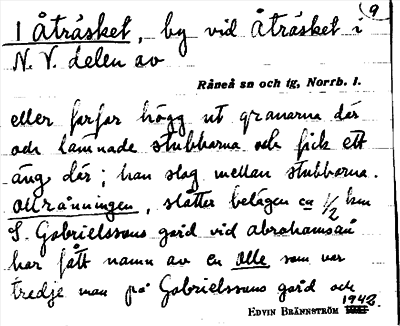 9
1 Åträsket, by vid Åträsket i
N. V. delen av
Råneå sn och tg, Norrb. l.
eller farfar högg ut granarna där
och lämnade stubbarna och fick ett
äng där; han slog mellan stubbarna.
Ollränningen, slåtter belägen ca 1/2 km
S. Gabrielssons gård vid Abrahamsån
har fått namn av en Olle som var
tredje man på Gabrielssons gård och
EDVIN BRÄNNSTRÖM 1942.